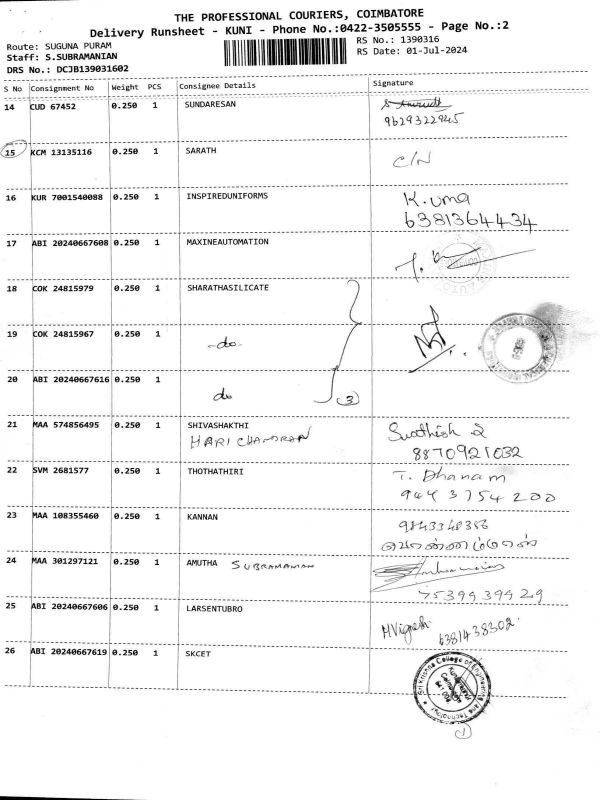 THE PROFESSIONAL COURIERS, COIMBATORE
Delivery Runsheet - KUNI - Phone No.:0422-3505555 - Page No.:2
Route: SUGUNA PURAM RS No.: 1390316
Staff: S.SUBRAMANIAN RS Date: 01-Jul-2024
DRS No.: DCJB139031602
S No Consignment No Weight PCS Consignee Details Signature
14 CUD 67452 0.250 1 SUNDARESAN
9629322945
15 KCM 13135116 0.250 1 SARATH C/N
16 KUR 7001540088 0.250 1 INSPIREDUNIFORMS K.uma
6381364434
17 ABI 20240667608 0.250 1 MAXINEAUTOMATION
18 COK 24815979 0.250 1 SHARATHASILICATE
19 COK 24815967 0.250 1 -do-
20 ABI 20240667616 0.250 1 do 3
21 MAA 574856495 0.250 1 SHIVASHAKTHI
HARI CHANDRAN
8870921032
22 SVM 2681577 0.250 1 THOTHATHIRI T. Dhanam
9443754200
23 MAA 108355460 0.250 1 KANNAN 9843348386
24 MAA 301297121 0.250 1 AMUTHA SUBRAMANIAN
7539939929
25 ABI 20240667606 0.250 1 LARSENTUBRO M Vignesh
6381438302
26 ABI 20240667619 0.250 1 SKCET
Sri Krishna College of Engineering and Technology
Kuniamuthur
Coimbatore
641 008
1